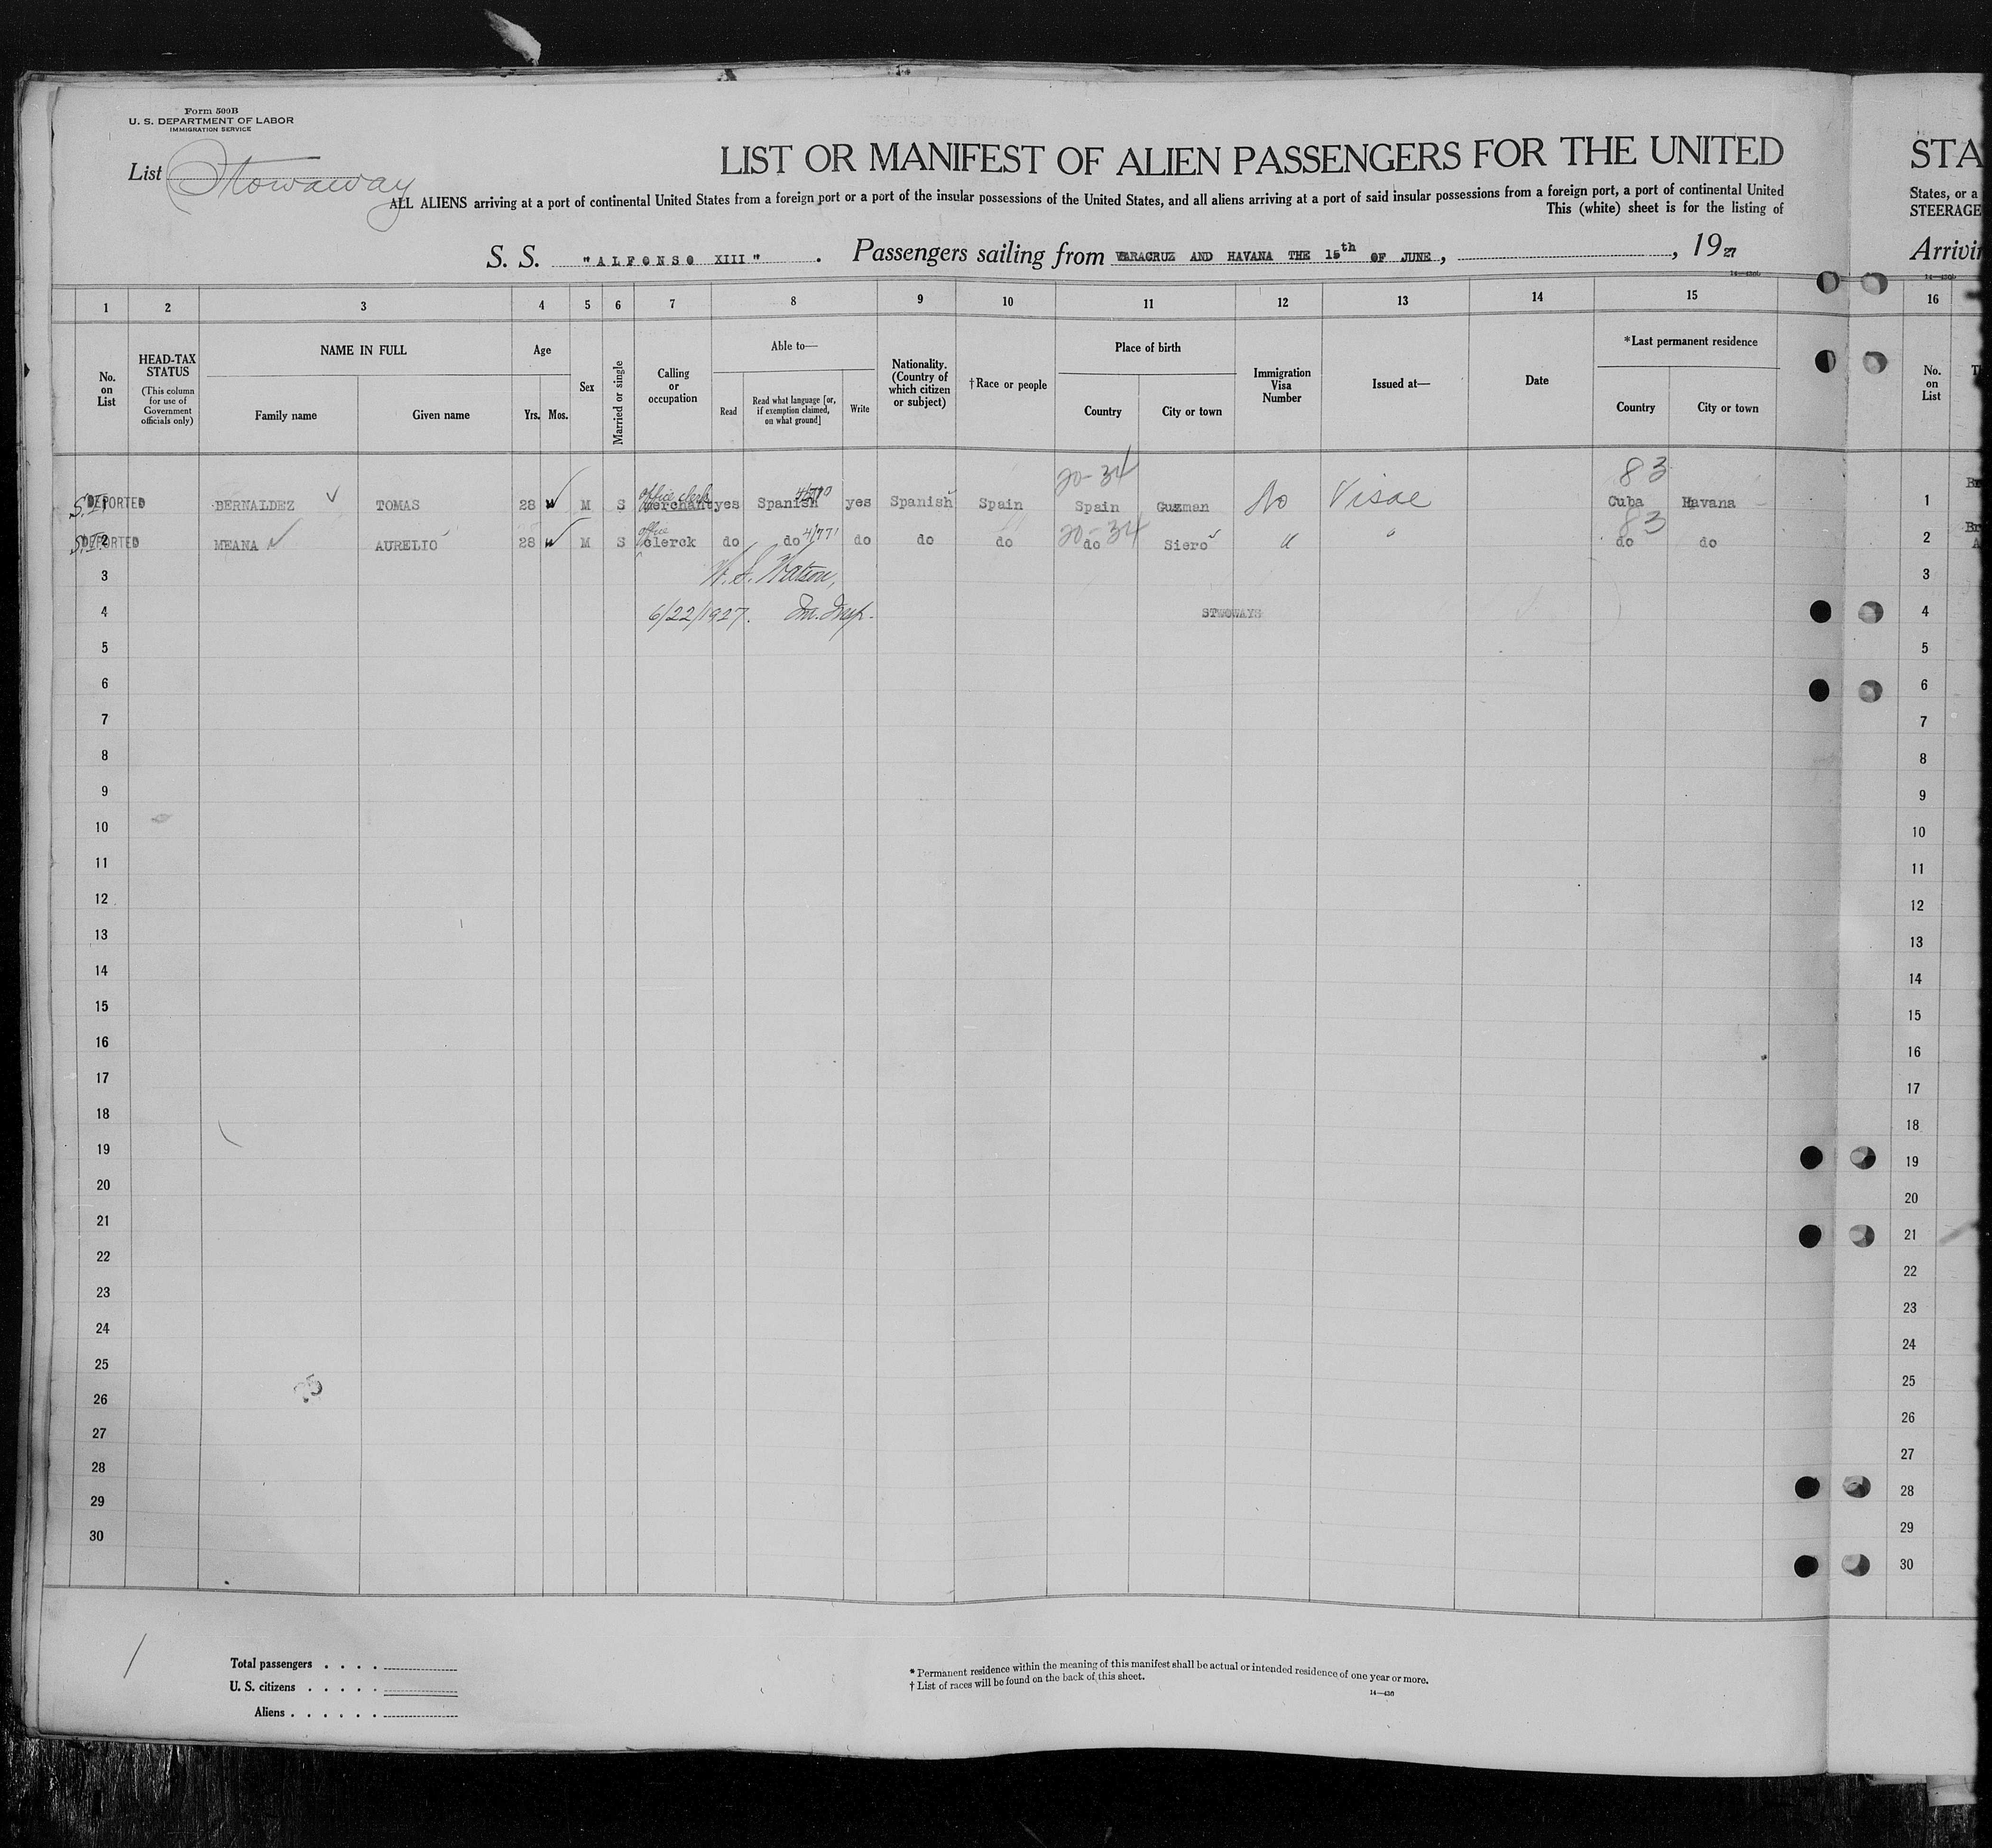 Form 500B
U. S. DEPARTMENT OF LABOR
IMMIGRATION SERVICE
List Stowaway
LIST OR MANIFEST OF ALIEN PASSENGERS FOR THE UNITED
ALL ALIENS arriving at a port of continental United States from a foreign port or a port of the insular possessions of the United States, and all aliens arriving at a port of said insular possessions from a foreign port, a port of continental United
This (white) sheet is for the listing of
S. S. "ALFONSO XIII". Passengers sailing from VARACRUZ AND HAVANA THE 15th OF JUNE, , 1927
STA
States, or a
STEERAGE
Arrivin
1 2 3 4 5 6 7 8 9 10 11 12 13 14 15 16
No. on List
HEAD-TAX STATUS
(This column for use of Government officials only)
NAME IN FULL
Family name Given name
Age
Yrs. Mos.
Sex
Married or single
Calling or occupation
Able to—
Read Read what language [or, if exemption claimed, on what ground] Write
Nationality. (Country of which citizen or subject)
†Race or people
Place of birth
Country City or town
Immigration Visa Number
Issued at—
Date
*Last permanent residence
Country City or town
No. on List
20-34 83
office clerk 4/770
S.I. DEPORTED 1 BERNALDEZ TOMAS 28 M S merchant yes Spanish yes Spanish Spain Spain Guzman No Visae Cuba Havana 1
office 4/771 20-34 83
S.I. DEPORTED 2 MEANA AURELIO 28 M S clerck do do do do do do Siero " " do do 2
3 W. S. Watson, 3
4 6/22/1927. Im. Insp. STWOWAYS 4
5 5
6 6
7 7
8 8
9 9
10 10
11 11
12 12
13 13
14 14
15 15
16 16
17 17
18 18
19 19
20 20
21 21
22 22
23 23
24 24
25 25
26 26
27 27
28 28
29 29
30 30
Total passengers . . . .
U. S. citizens . . . . .
Aliens . . . . . .
* Permanent residence within the meaning of this manifest shall be actual or intended residence of one year or more.
† List of races will be found on the back of this sheet.
14—430